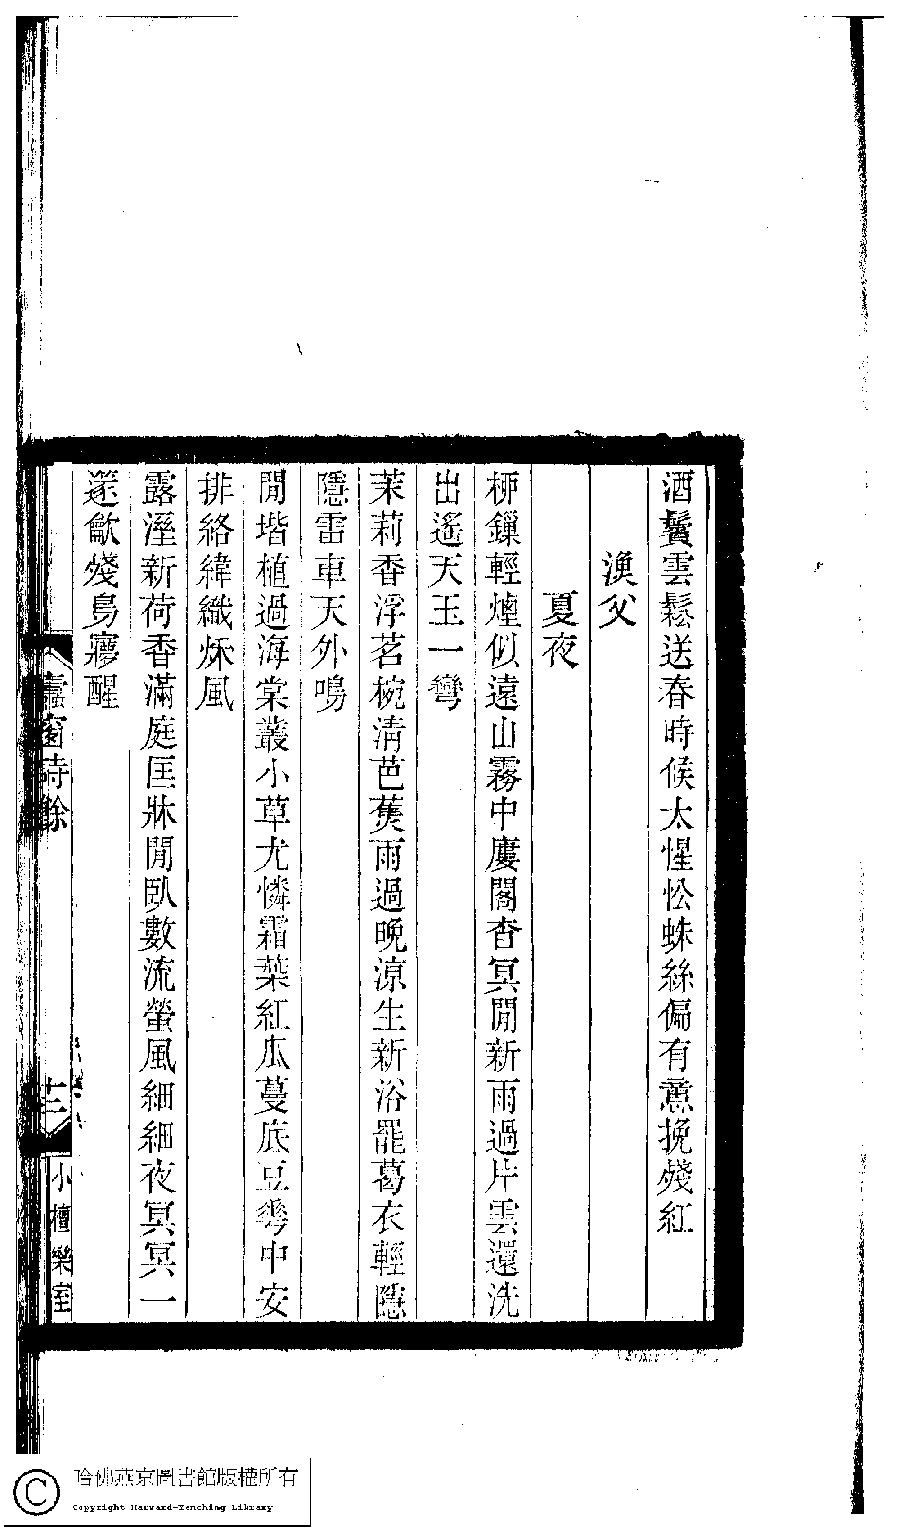 酒鬢雲鬆送春時候太惺忪蛛絲偏有薏挽殘紅
漁父
夏夜
桺鏁輕煙似遠山霧中廔閣杳冥閒新雨過片雲還洗
出遙天玉一彎
茉莉香浮茗椀清芭蕉雨過晚涼生新浴罷葛衣輕隱
隱雷車天外鳴
閒堦植過海棠叢小草尤憐霜葉紅瓜蔓底豆花中安
排絡緯織秌風
露溼新荷香滿庭匡牀閒臥數流螢風細細夜冥冥一
邃歈殘鳥寱醒
蠹窗詩餘
小檀欒室
哈佛燕京圖書館版權所有
Copyright Harvard-Yenching Library